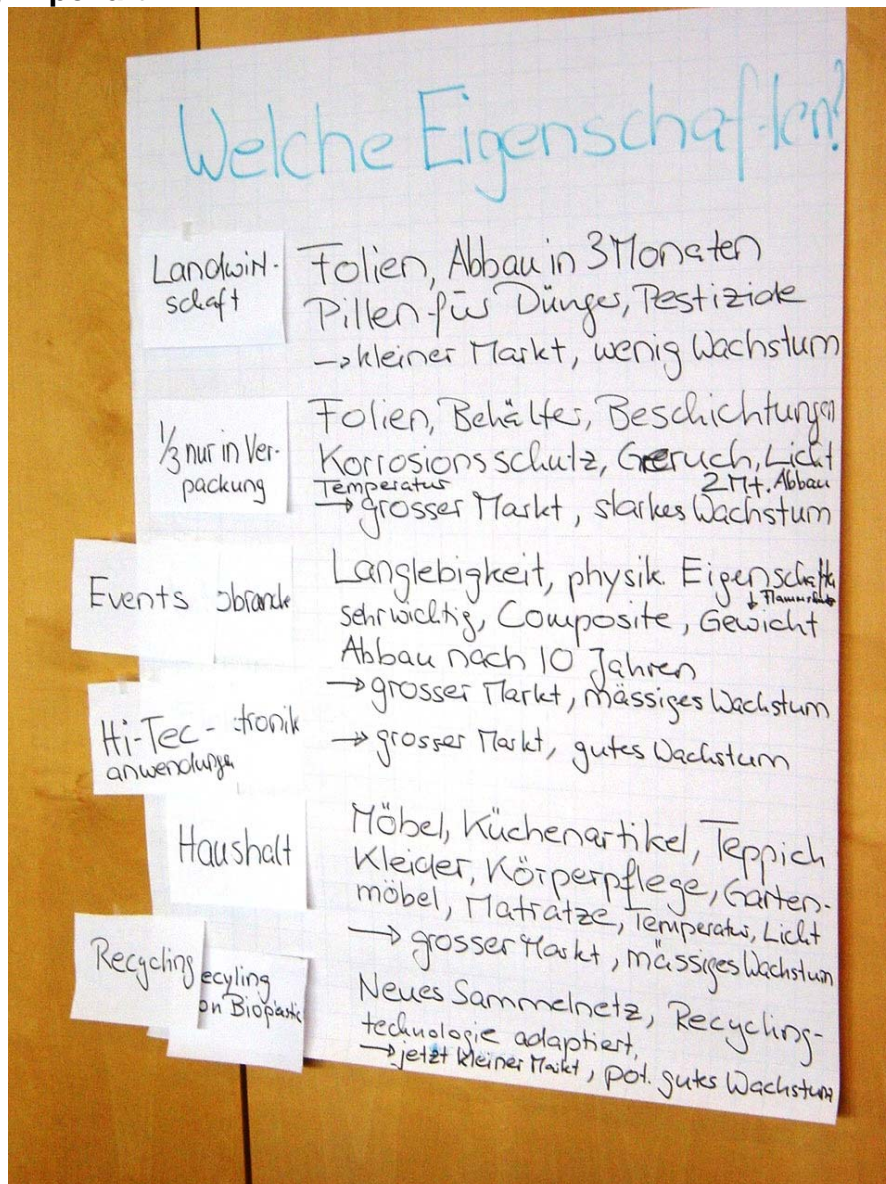 Welche Eigenschaften?
Landwirt-
schaft
Folien, Abbau in 3 Monaten
Pillen für Dünger, Pestizide
→ kleiner Markt, wenig Wachstum
1/3 nur in Ver-
packung
Folien, Behälter, Beschichtungen
Korrosionsschutz, Geruch, Licht
Temperatur 2 Mt. Abbau
→ grosser Markt, starkes Wachstum
Events obranche
Langlebigkeit, physik. Eigenschaften
sehr wichtig, Composite, Gewicht
Abbau nach 10 Jahren
→ grosser Markt, mässiges Wachstum
Hi-Tec- tronik
anwendungen
→ grosser Markt, gutes Wachstum
Haushalt
Möbel, Küchenartikel, Teppich
Kleider, Körperpflege, Garten-
möbel, Matratze, Temperatur, Licht
→ grosser Markt, mässiges Wachstum
Recycling
ecyling
on Bioplastic
Neues Sammelnetz, Recycling-
technologie adaptiert,
→ jetzt kleiner Markt, pot. gutes Wachstum